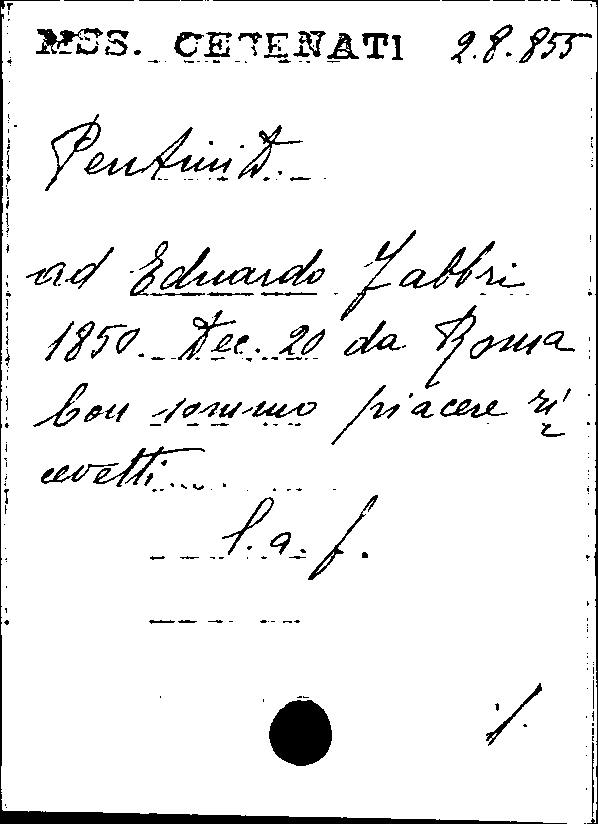 MSS. CESENATI 2.8.855
Pentini D.
ad Eduardo Fabbri
1850. Dec. 20 da Roma
Con sommo piacere ri=
cevetti....
l. a. f.